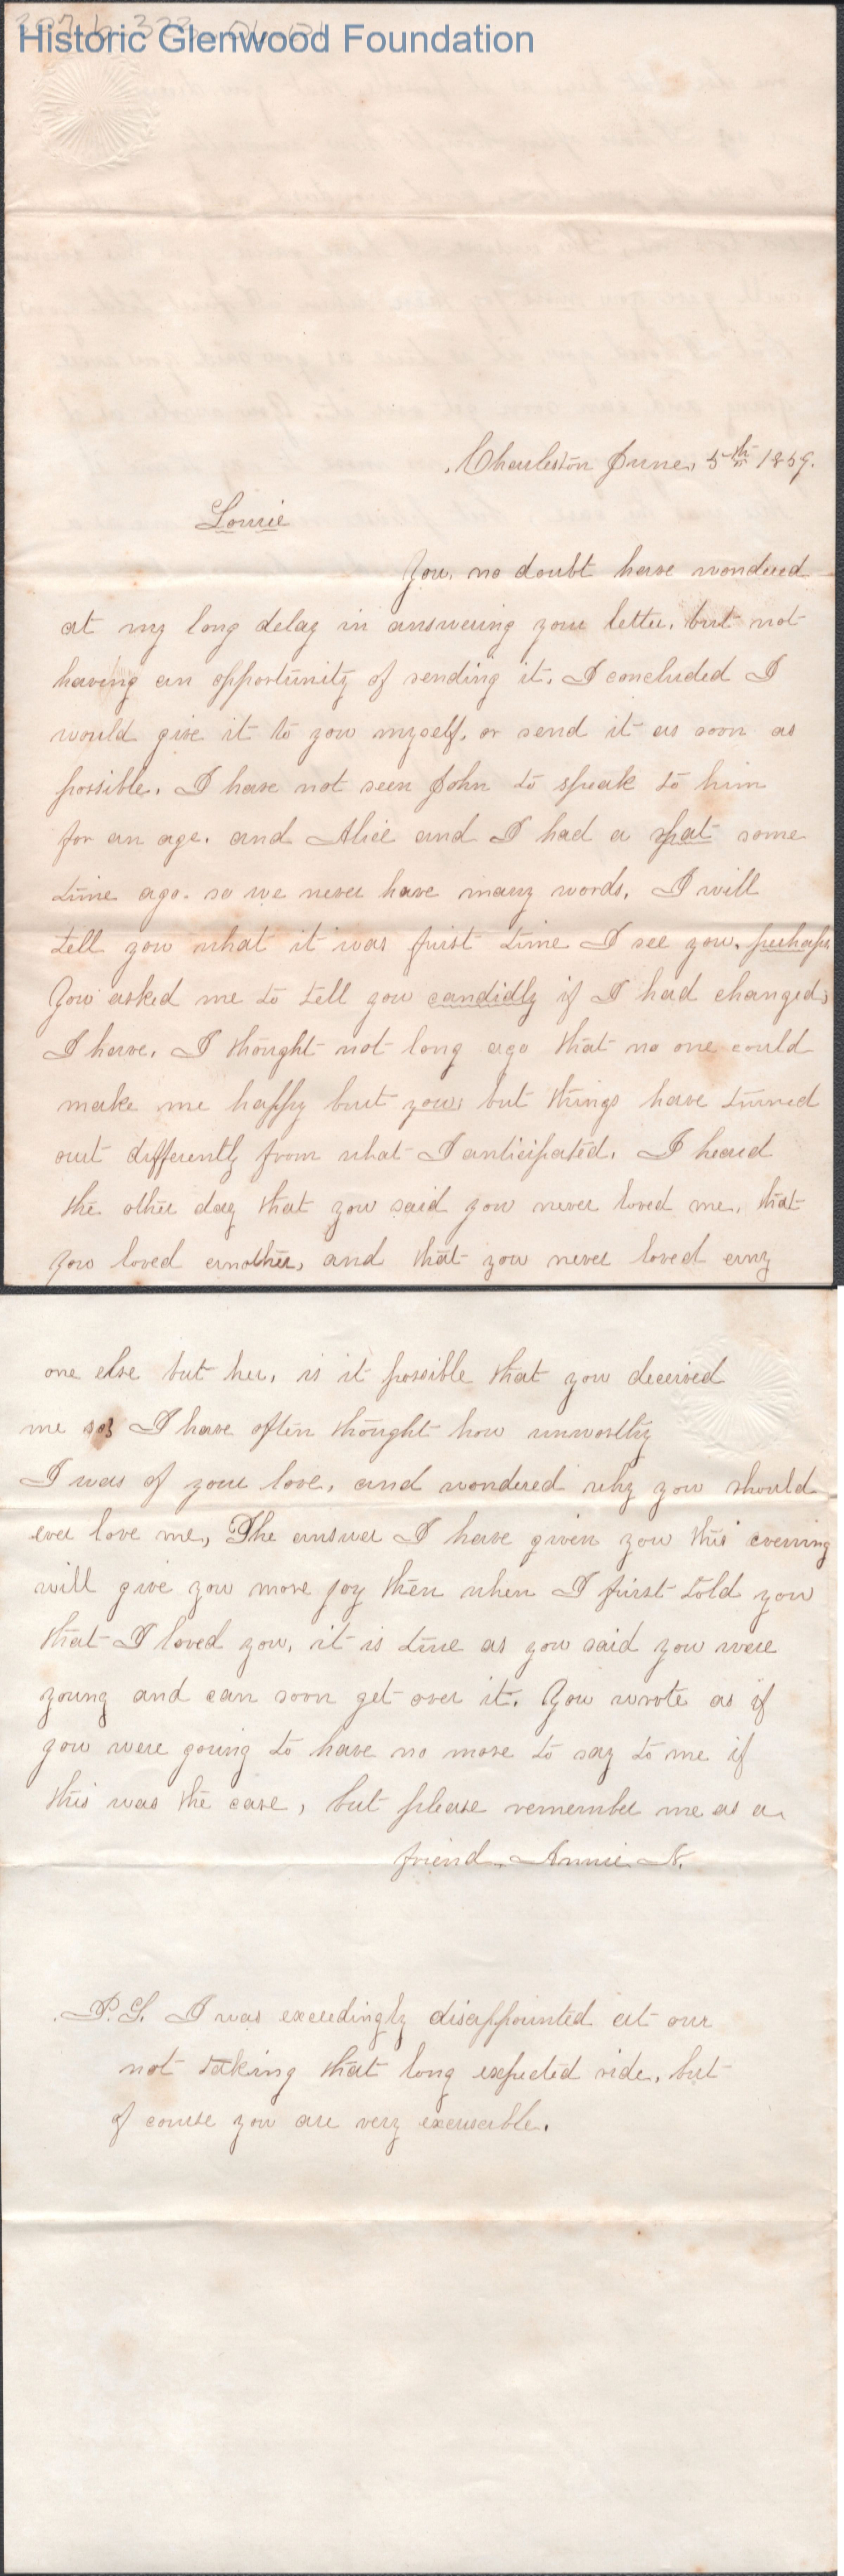 Historic Glenwood Foundation
Charleston June, 5th 1859.
Lowrie
You, no doubt have wondered
at my long delay in answering your letter, but not
having an opportunity of sending it, I concluded I
would give it to you myself, or send it as soon as
possible. I have not seen John to speak to him
for an age, and Alice and I had a spat some
time ago, so we never have many words, I will
tell you what it was first time I see you, perhaps
You asked me to tell you candidly if I had changed;
I have. I thought not long ago that no one could
make me happy but you, but things have turned
out differently from what I anticipated. I heard
the other day that you said you never loved me, that
you loved another, and that you never loved any
one else but her, is it possible that you deceived
me so? I have often thought how unworthy
I was of your love, and wondered why you should
ever love me, The answer I have given you this evening
will give you more joy then when I first told you
that I loved you, it is true as you said you were
young and can soon get over it. You wrote as if
you were going to have no more to say to me if
this was the case, but please remember me as a
friend, Annie N.
P.S. I was exceedingly disappointed at our
not taking that long expected ride, but
of course you are very excuseable.